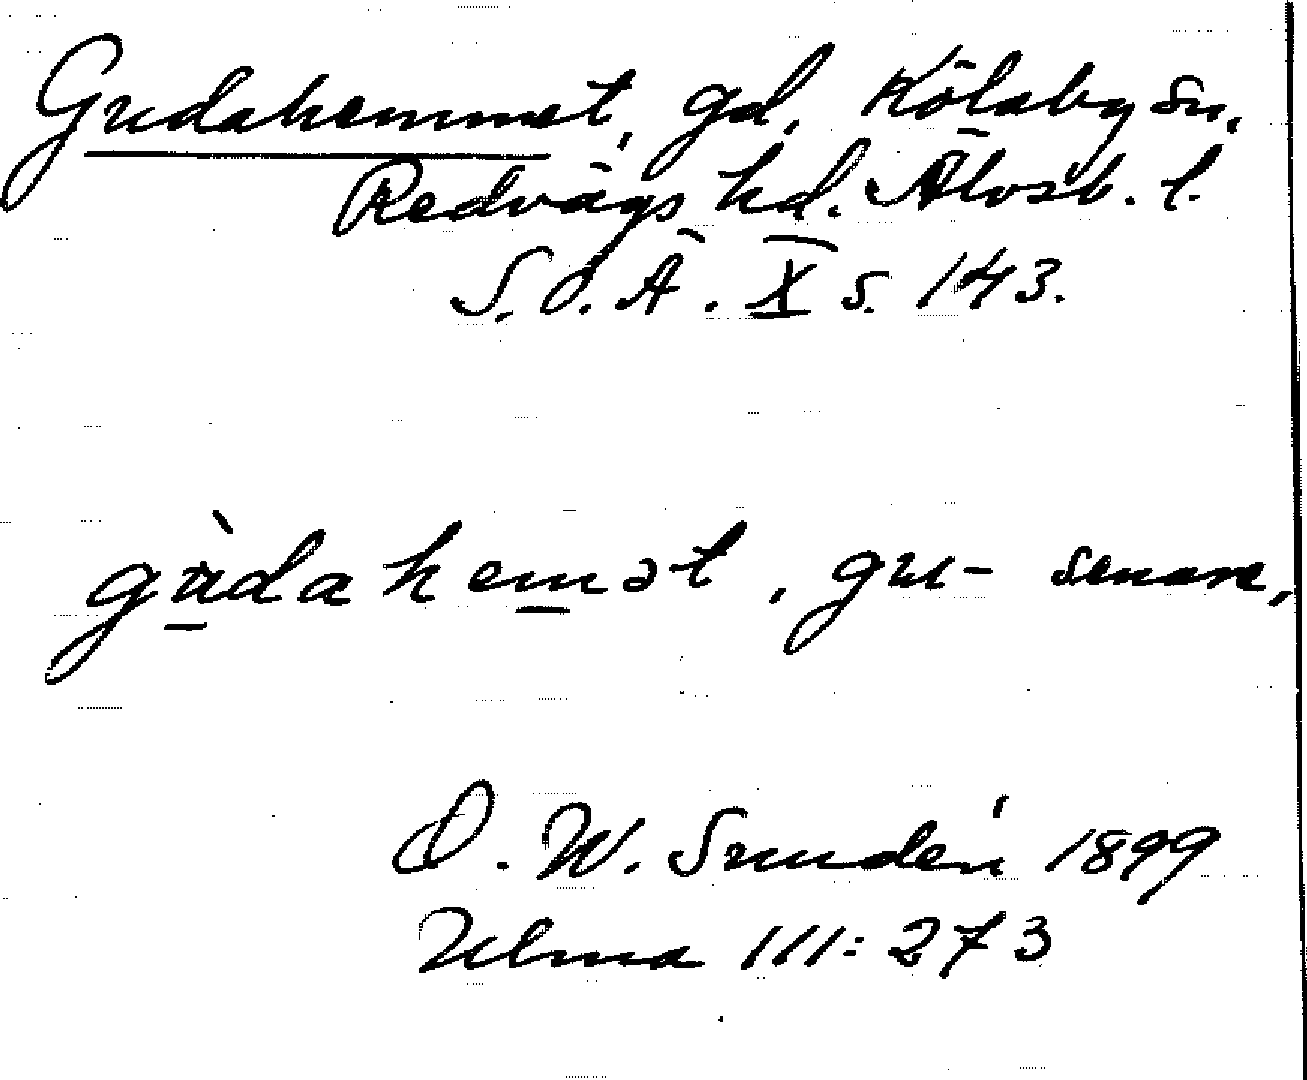 Gudahemmet, gd, Kölaby sn,
Redvägs hd. Älvsb. l.
S. O. Ä. X s. 143.
gùdahemət, gu- senare,
D. W. Sundén 1899
Ulma 111:273